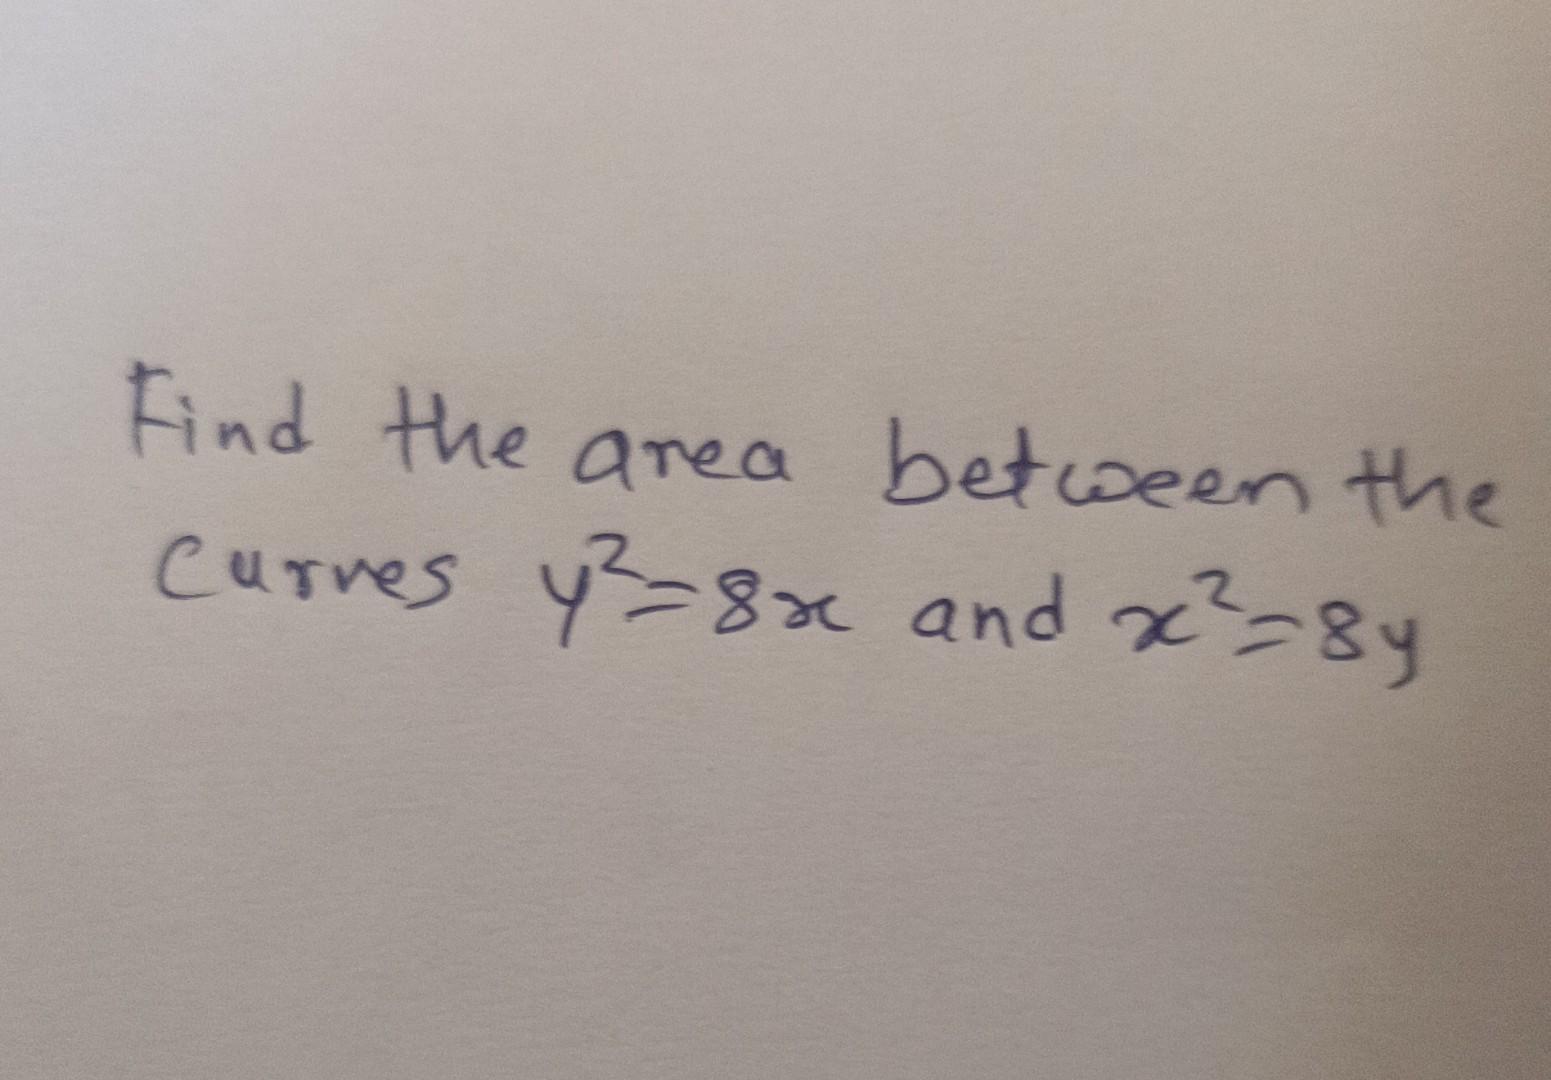 Find the area between the
curves y²=8x and x²=8y